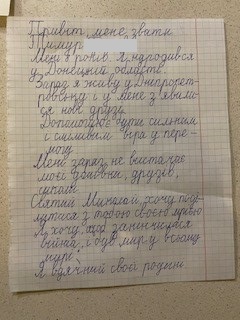 Привіт, мене звати
Тимур
Мені 8 років. Я народився
у Донецькій області.
Зараз я живу у Дніпропет-
ровську і у мене з'явили-
ся нові друзі.
Допомагає бути сильним
і сміливим віра у пере-
могу
Мені зараз не вистачає
моєї домівки, друзів,
школи
Святий Миколай, хочу поді-
литися з тобою своєю мрією
Я хочу, щоб закінчилася
війна, і був мир у всьому
мирі!
Я вдячний своїй родині